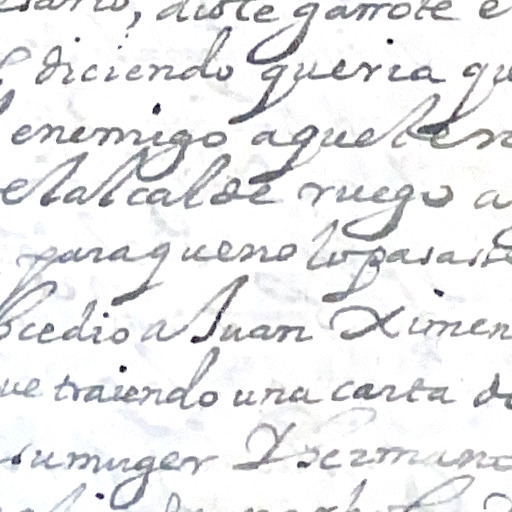 diole garrote
diciendo queria qu
enemigo aquel en
el alcalde ruego a
para que no lo pasas
cedio a Juan Ximen
ue traiendo una carta d
su muger Y hermano